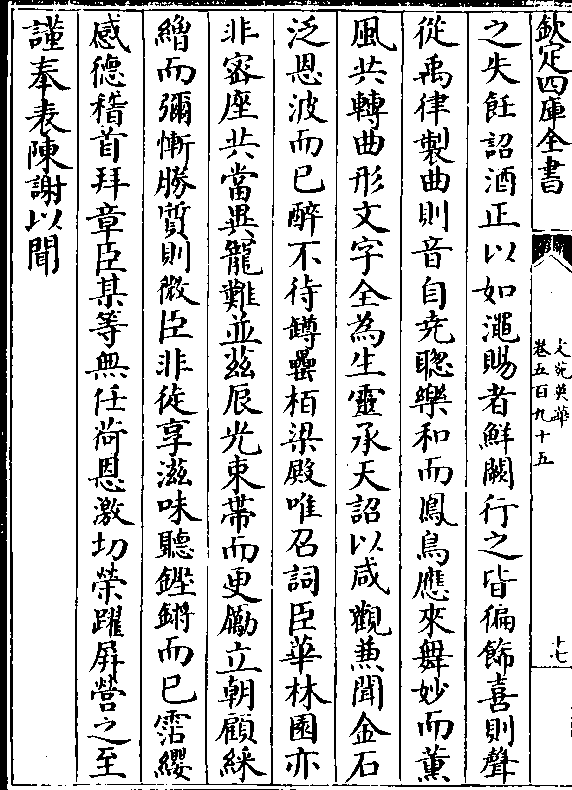 欽定四庫全書
文苑英華
卷五百九十五
十七
之失飪詔酒正以如澠賜者鮮闕行之皆徧飾喜則聲
從禹律製曲則音自堯聰樂和而鳳鳥應來舞妙而薰
風共轉曲形文字全為生靈承天詔以咸觀兼聞金石
泛恩波而已醉不待罇罍栢梁殿唯召詞臣華林園亦
非密座共當異寵難並兹辰光束帶而更勵立朝顧綵
繒而彌慚勝質則微臣非徒享滋味聽鏗鏘而已霑纓
感德稽首拜章臣某等無任荷恩激切榮躍屏營之至
謹奉表陳謝以聞